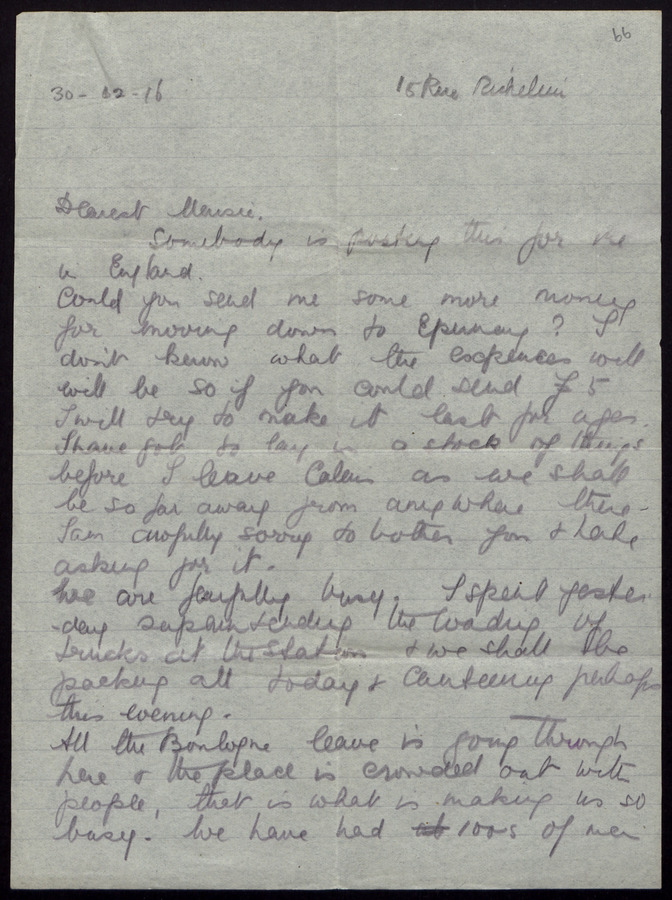 66
30-12-16
15 Rue Richelieu
Dearest Mousie.
Somebody is posting this for me
in England.
Could you send me some more money
for moving down to Epernay? I
don't know what the expences will
will be so if you could send £5
I will try to make it last for ages.
I have got to lay in a stock of things
before I leave Calais as we shall
be so far away from anywhere there.
I am awfully sorry to bother you & hate
asking for it.
We are fearfully busy. I spent yester
-day superintending the loading of
trucks at the Station & we shall be
packing all today & Canteening perhaps
this evening.
All the Boulogne leave is going through
here & the place is crowded out with
people, that is what is making us so
busy. We have had 100s of men